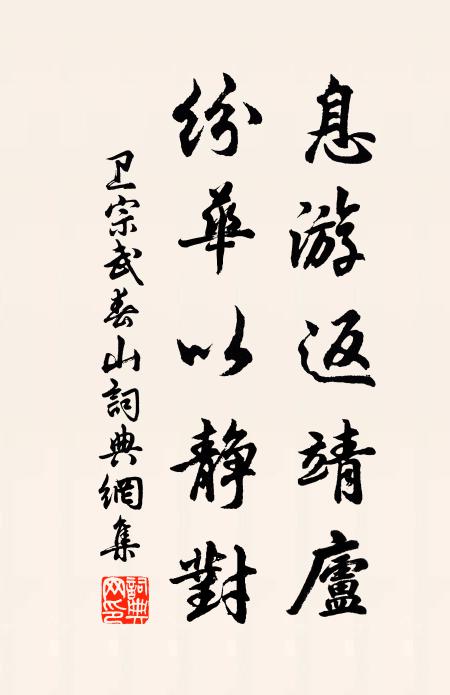 息游返靖廬
紛華以静對
卫宗武春山詞典網集
詞典网印